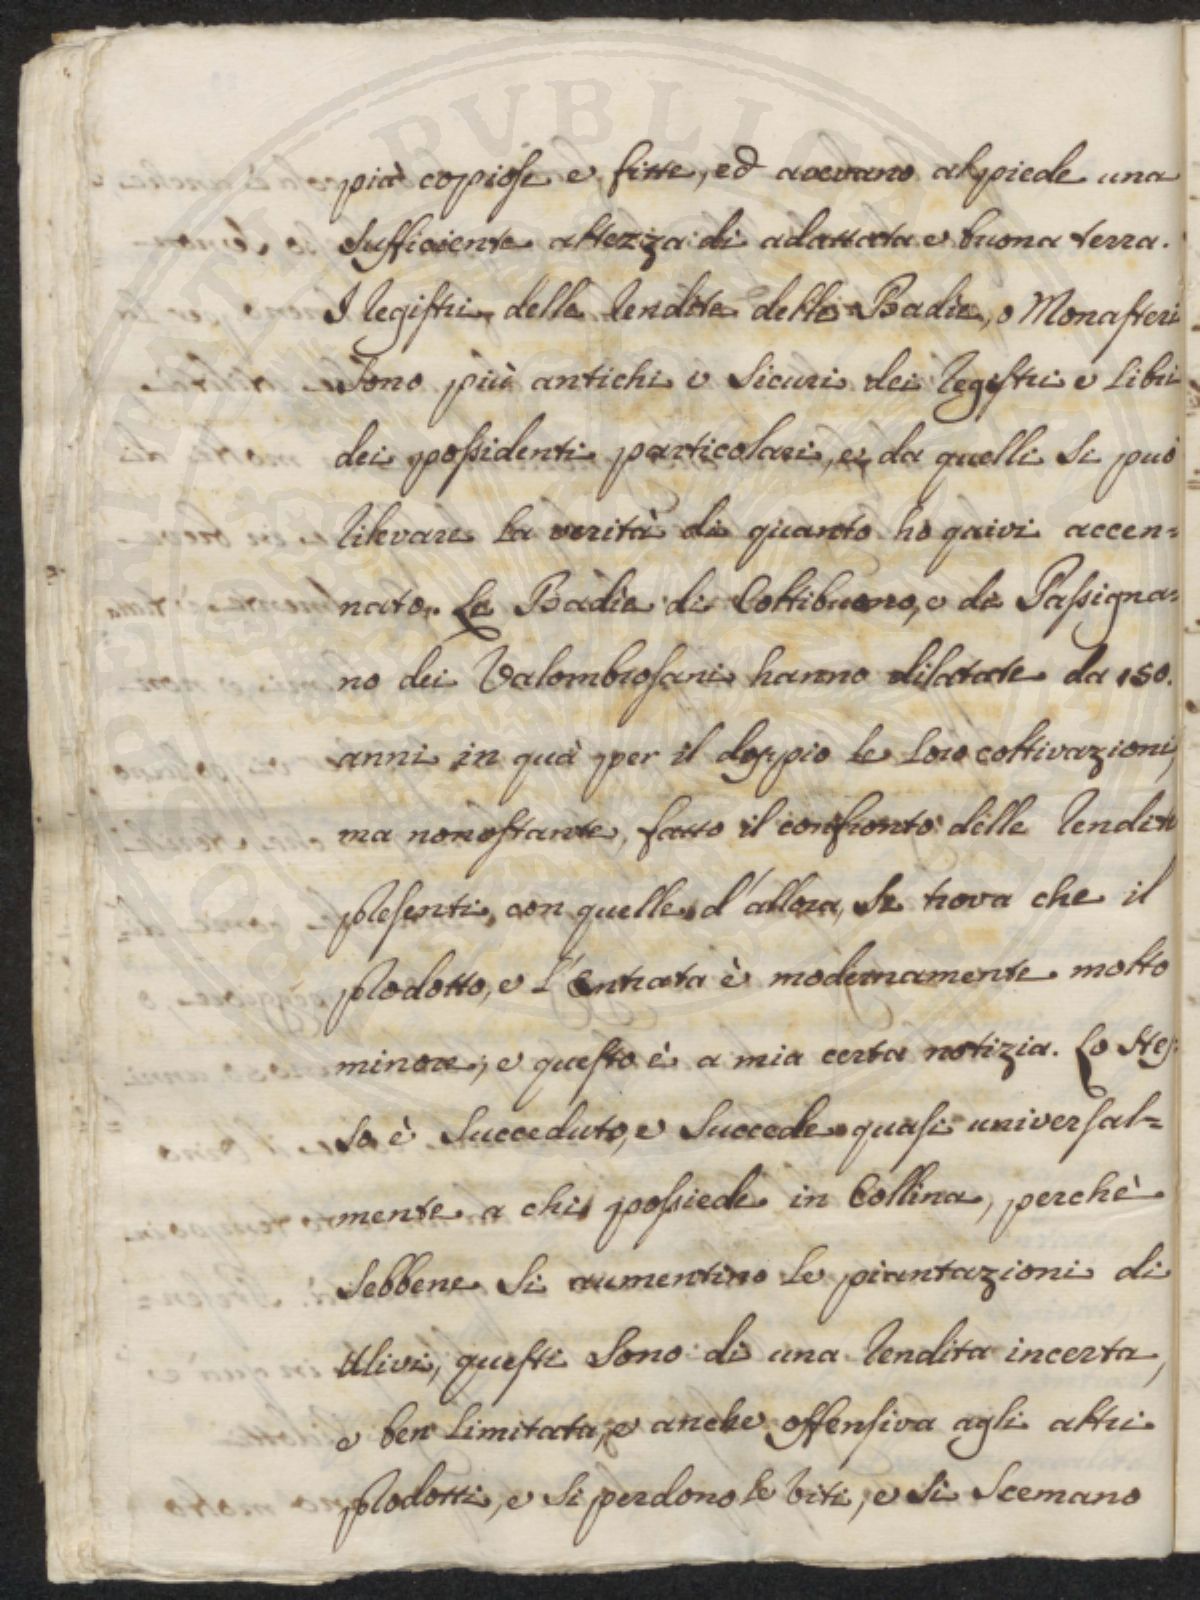 più copiose e fitte, ed avevano al piede una
sufficiente altezza di adattata e buona terra.
I Registri delle Rendite delle Badie, o Monasteri
sono più antichi e sicuri dei Registri e Libri
dei possidenti particolari, e da quelli si può
rilevare la verità di quanto hò quivi accen=
nato. Le Badie di Coltibuono, e di Passigna=
no dei Valombrosani hanno dilatate da 150.
anni in quà per il doppio le loro coltivazioni,
ma nonostante, fatto il confronto delle Rendite
presenti, con quelle d'allora, si trova che il
prodotto, e l'Entrata è modernamente molto
minore, e questo è a mia certa notizia. Lo stes=
so è succeduto, e succede quasi universal=
mente a chi possiede in Collina, perchè
sebbene si aumentino le piantazioni di
Ulivi, questi sono di una Rendita incerta,
e ben limitata, e anche offensiva agli altri
prodotti, e si perdono le viti, e si scemano
PUBLICA